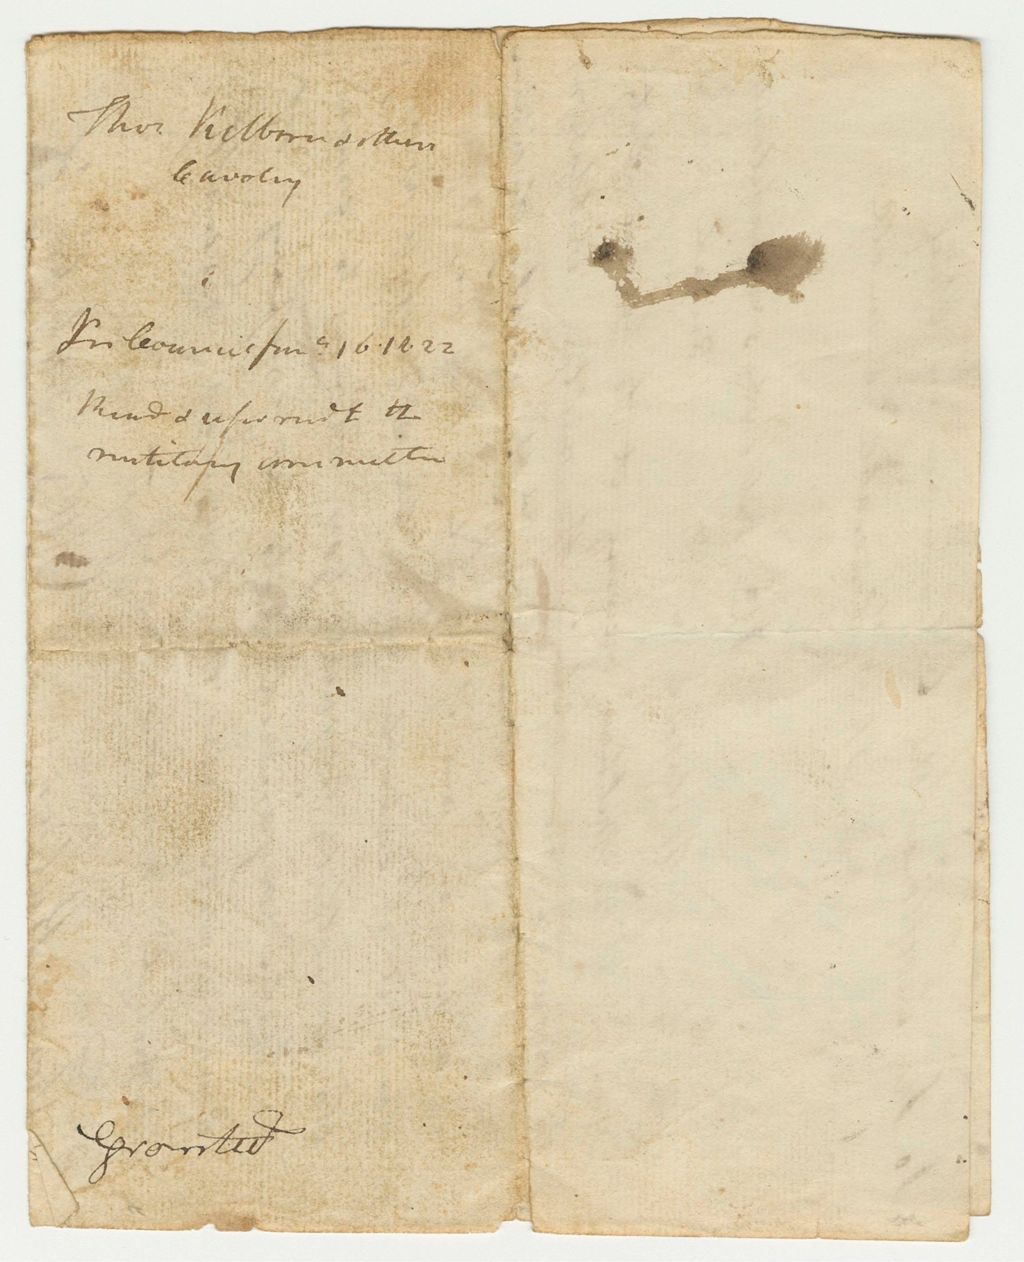 Thos Kelborn & others
Cavalry
In Council Jany 16 1822
Read & referred t the
military committee
Granted